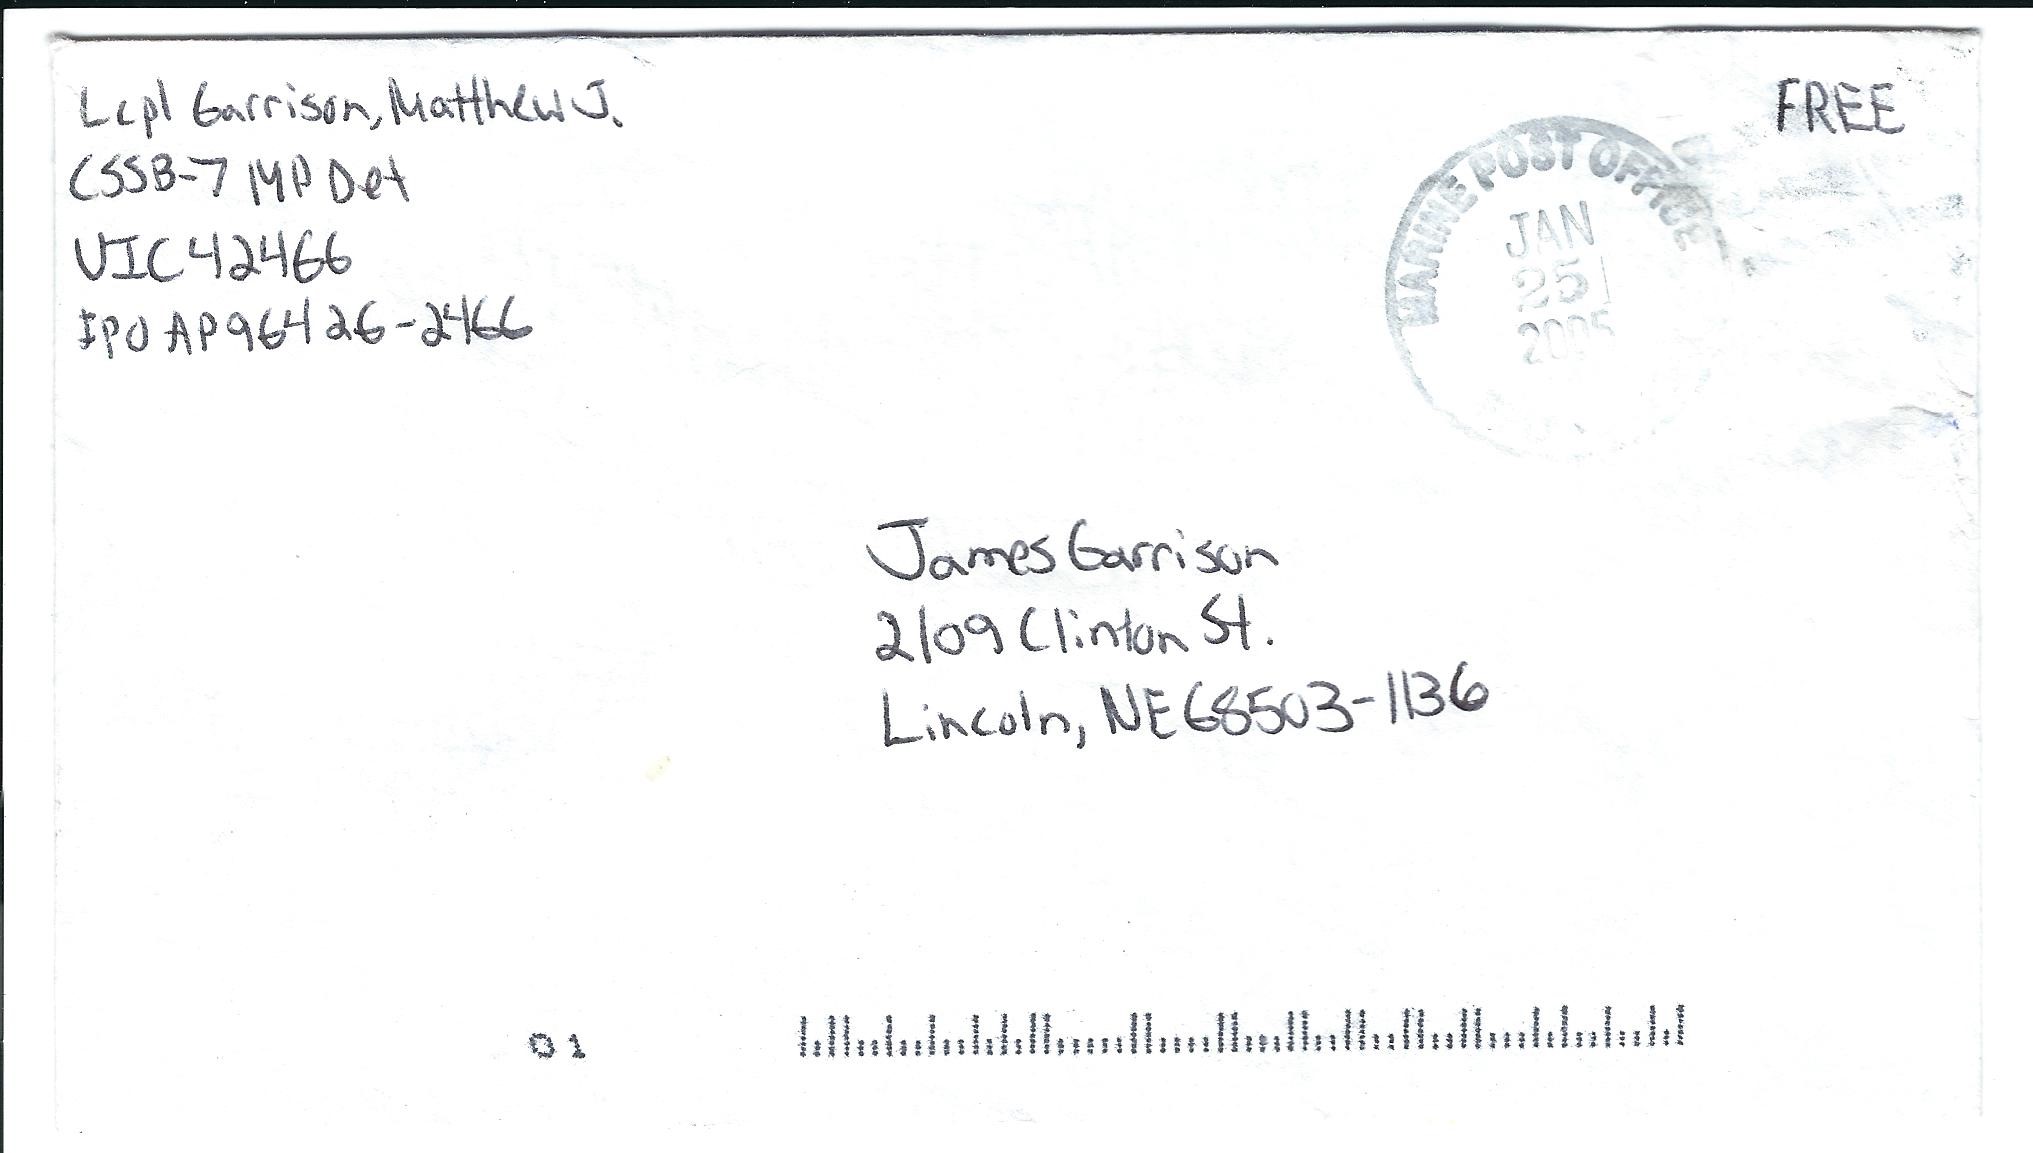 Lcpl Garrison, Matthew J.
CSSB-7 MP Det
UIC 42466
FPO AP 96426-2466
FREE
MARINE POST OFFICE
JAN
25
2005
James Garrison
2109 Clinton St.
Lincoln, NE 68503-1136
01